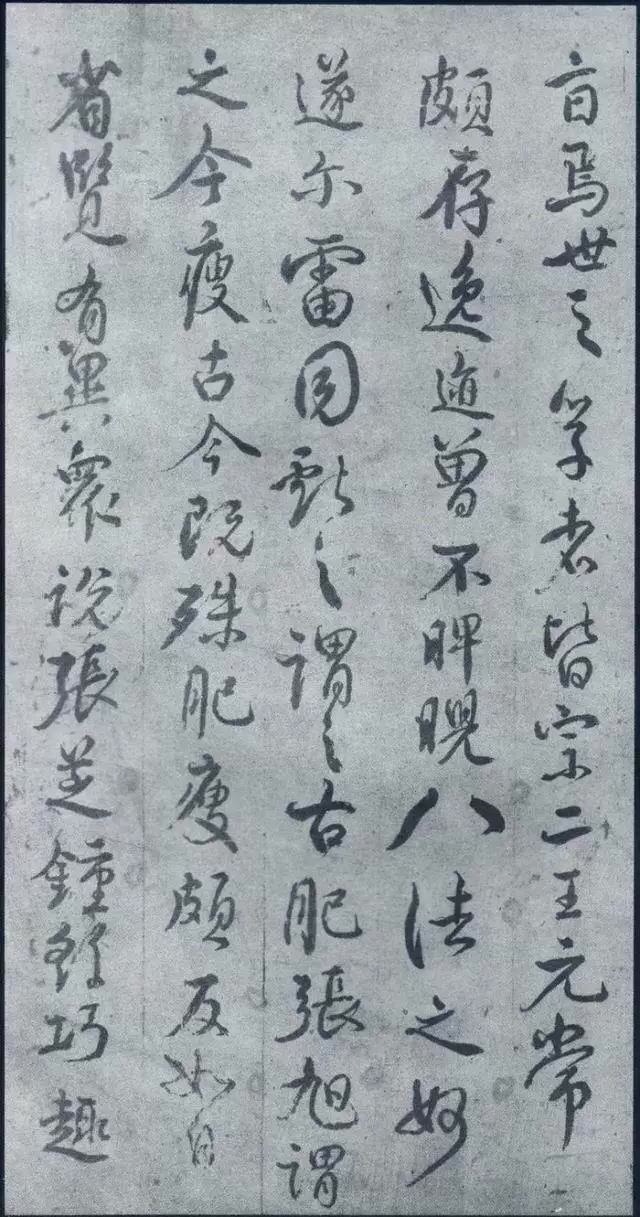 旨焉世之學者皆宗二王元常
頗存逸迹曾不睥睨八法之妙
遂尔雷同獻之謂之古肥張旭謂
之今瘦古今既殊肥瘦頗反如自
省覽有異衆説張芝鍾繇巧趣